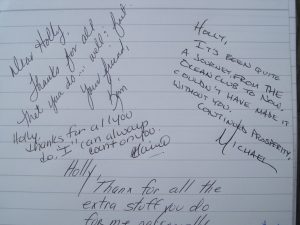 Dear Holly,
Thanks for all
that you do... well: feel.
Your friend,
Kim
Holly,
IT'S BEEN QUITE
A JOURNEY FROM THE
OCEAN CLUB TO NOW.
COULDN'T HAVE MADE IT
WITHOUT YOU.
CONTINUED PROSPERITY,
MICHAEL
Holly,
Thanks for all you
do, I can always
count on you.
Elaine
Holly,
Thanx for all the
extra stuff you do
for me personally